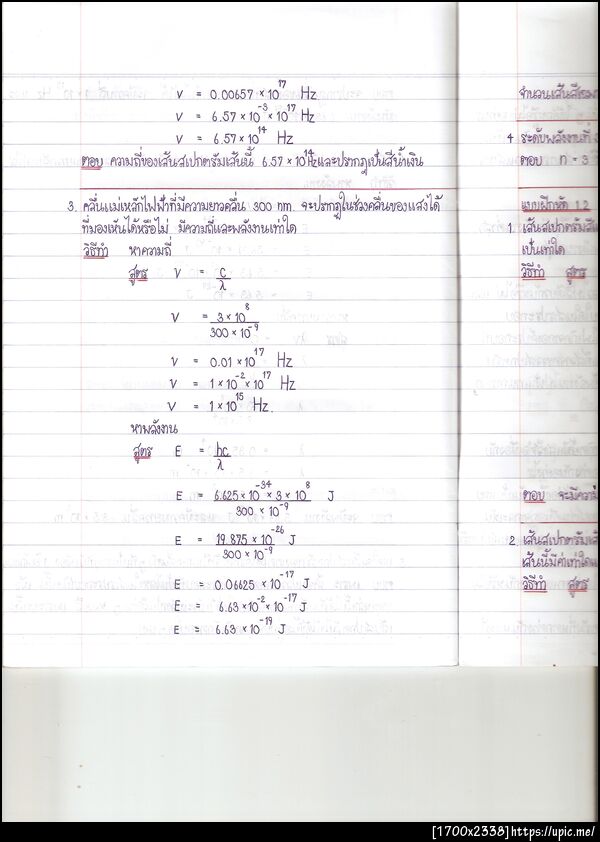 ν = 0.00657 × 10¹⁷ Hz
ν = 6.57 × 10⁻³ × 10¹⁷ Hz
ν = 6.57 × 10¹⁴ Hz
ตอบ ความถี่ของเส้นสเปกตรัมเส้นนี้ 6.57 × 10¹⁴ Hz และปรากฏเป็นสีน้ำเงิน
3. คลื่นแม่เหล็กไฟฟ้าที่มีความยาวคลื่น 300 nm จะปรากฏในช่วงคลื่นของแสงได้
ที่มองเห็นได้หรือไม่ มีความถี่และพลังงานเท่าใด
วิธีทำ หาความถี่
สูตร ν = c/λ
ν = 3 × 10⁸ / 300 × 10⁻⁹
ν = 0.01 × 10¹⁷ Hz
ν = 1 × 10⁻² × 10¹⁷ Hz
ν = 1 × 10¹⁵ Hz.
หาพลังงาน
สูตร E = hc/λ
E = 6.625 × 10⁻³⁴ × 3 × 10⁸ / 300 × 10⁻⁹ J
E = 19.875 × 10⁻²⁶ / 300 × 10⁻⁹ J
E = 0.06625 × 10⁻¹⁷ J
E = 6.63 × 10⁻² × 10⁻¹⁷ J
E = 6.63 × 10⁻¹⁹ J
4 ระดับพลังงานที่
ตอบ n = 3
แบบฝึกหัด 1.2
1. เส้นสเปกตรัมสี
เป็นเท่าใด
วิธีทำ สูตร
ตอบ จะมีความ
2. เส้นสเปกตรัมเส้
เส้นนี้มีค่าเท่าใด
วิธีทำ สูตร
[1700x2338]https://upic.me/